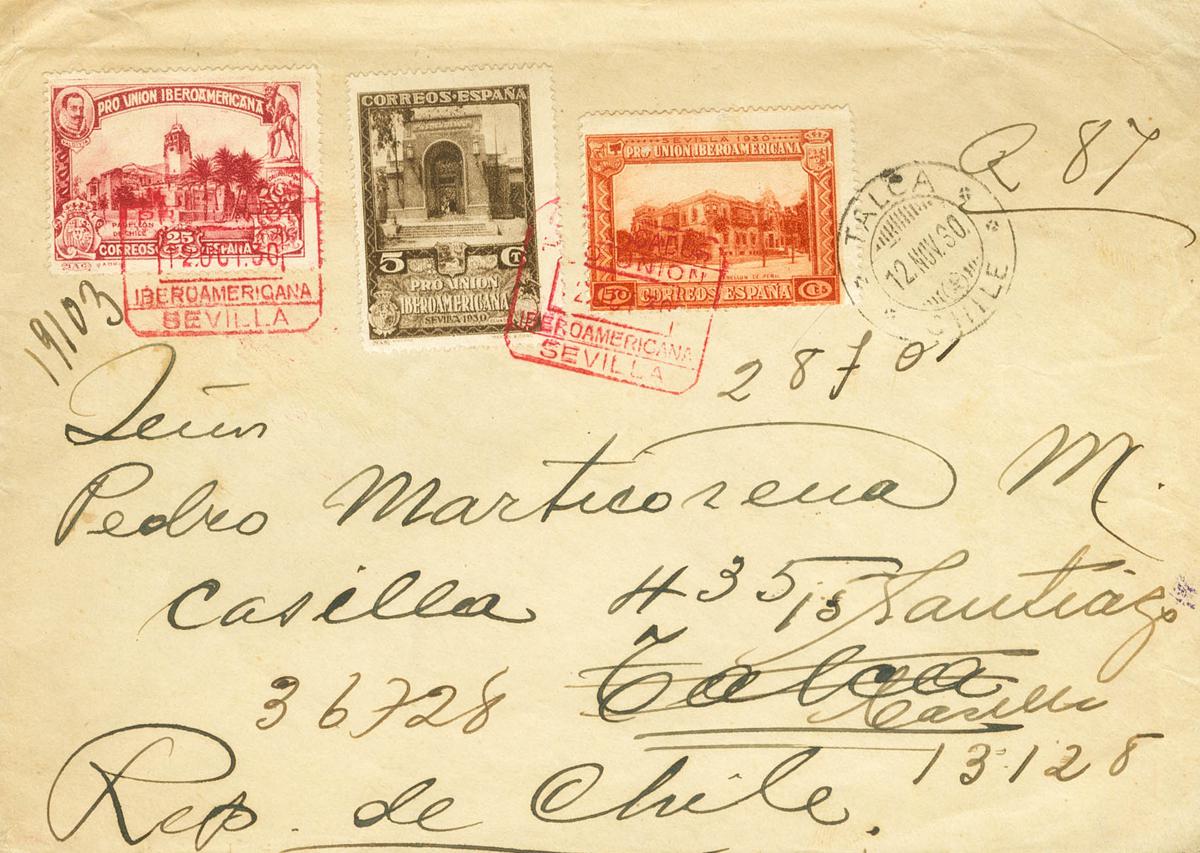 PRO UNION IBEROAMERICANA
PABELLON DE CHILE
25 CTS
CORREOS ESPAÑA
CORREOS·ESPAÑA
5 CTS
PRO UNION
IBEROAMERICANA
SEVILLA 1930
SEVILLA 1930
PRO UNION IBEROAMERICANA
PABELLON DE PERU
50 CTS
CORREOS ESPAÑA
12 OCT. 30
IBEROAMERICANA
SEVILLA
UNION
IBEROAMERICANA
SEVILLA
TALCA
12.NOV.30.
CHILE
R 87
19103
2870
Señor
Pedro Marticorena M.
Casilla 435
Santiago
36728 Talca
Casilla
13128
Rep. de Chile.